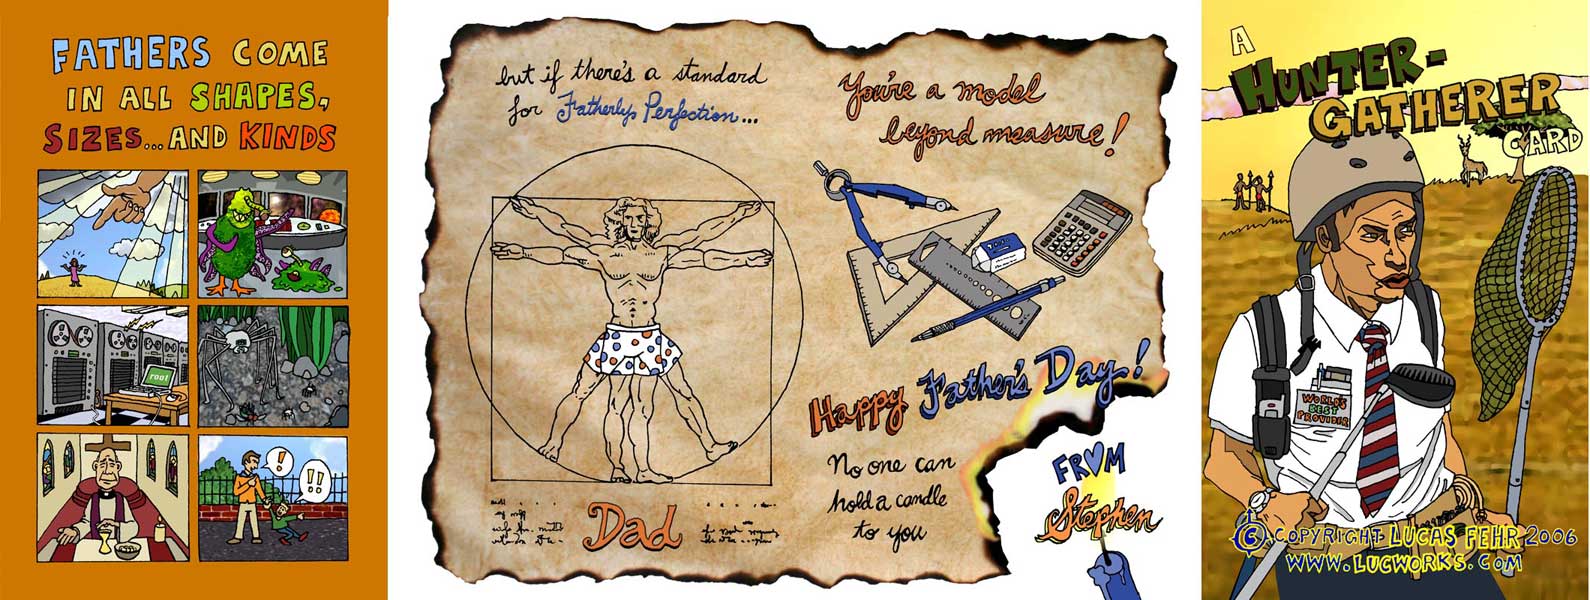 FATHERS COME
IN ALL SHAPES,
SIZES...AND KINDS
root
!
!!
but if there's a standard
for Fatherly Perfection...
You're a model
beyond measure!
Happy Father's Day!
No one can
hold a candle
to you
FROM
Stephen
Dad
A
HUNTER-
GATHERER
CARD
WORLD'S
BEST
PROVIDER
© COPYRIGHT LUCAS FEHR 2006
WWW.LUCWORKS.COM